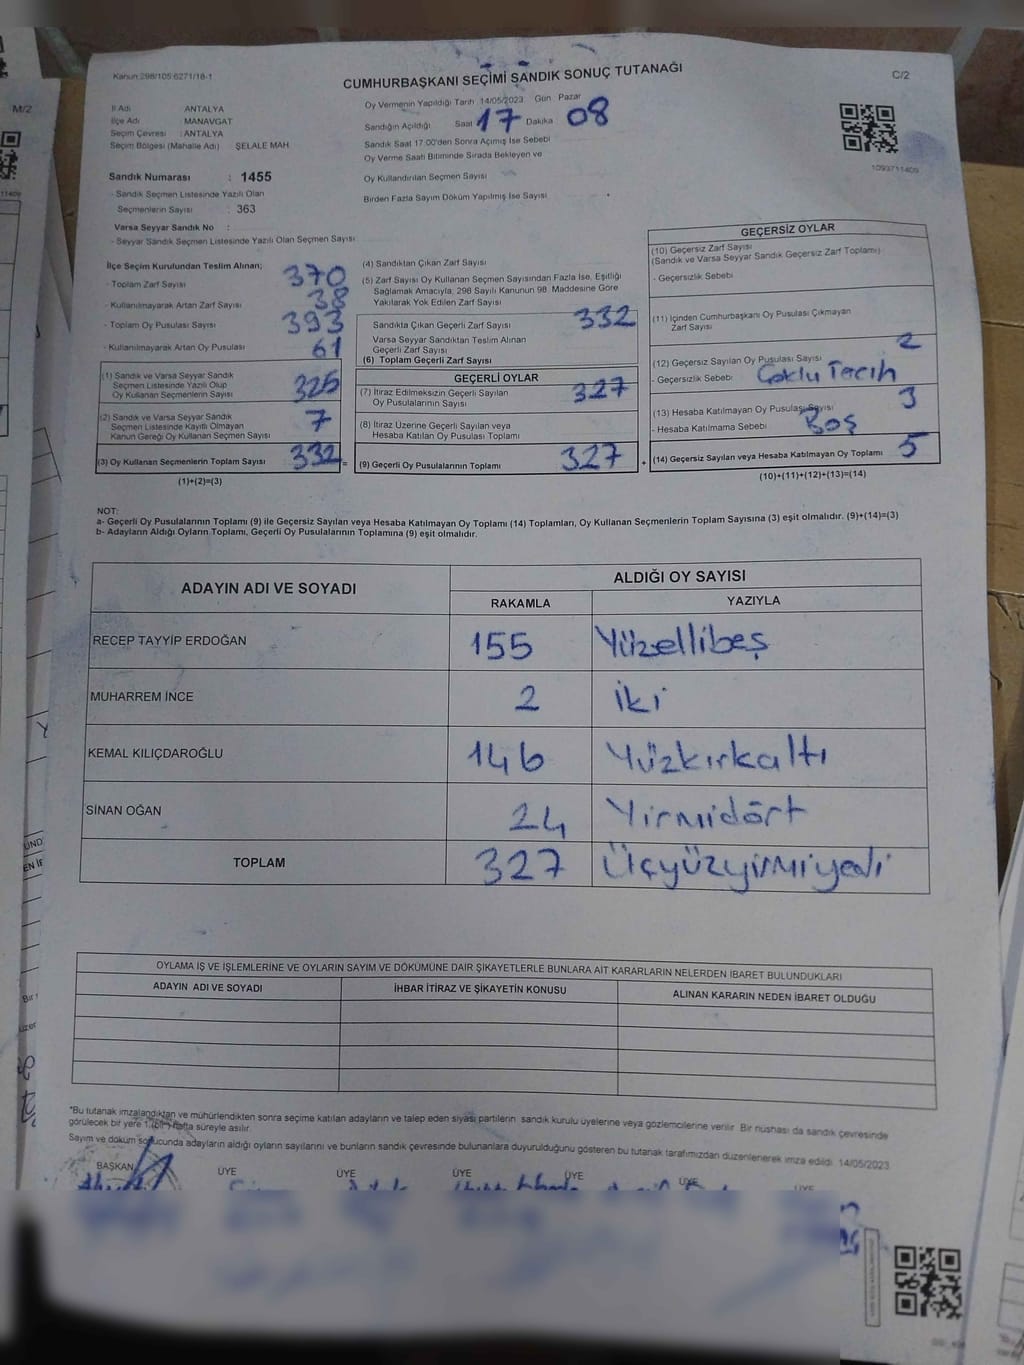 Kanun:298/105 6271/18-1
CUMHURBAŞKANI SEÇİMİ SANDIK SONUÇ TUTANAĞI
C/2
M/2
İl Adı ANTALYA
İlçe Adı MANAVGAT
Seçim Çevresi : ANTALYA
Seçim Bölgesi (Mahalle Adı) ŞELALE MAH
Sandık Numarası : 1455
- Sandık Seçmen Listesinde Yazılı Olan
Seçmenlerin Sayısı : 363
Varsa Seyyar Sandık No :
- Seyyar Sandık Seçmen Listesinde Yazılı Olan Seçmen Sayısı
Oy Vermenin Yapıldığı Tarih 14/05/2023 Gün Pazar
Sandığın Açıldığı Saat 17 Dakika 08
Sandık Saat 17:00'den Sonra Açımış İse Sebebi
Oy Verme Saati Bitiminde Sırada Bekleyen ve
Oy Kullandırılan Seçmen Sayısı
Birden Fazla Sayım Döküm Yapılmış İse Sayısı
1093711409
İlçe Seçim Kurulundan Teslim Alınan;
- Toplam Zarf Sayısı 370
- Kullanılmayarak Artan Zarf Sayısı 38
- Toplam Oy Pusulası Sayısı 393
- Kullanılmayarak Artan Oy Pusulası 61
(1) Sandık ve Varsa Seyyar Sandık
Seçmen Listesinde Yazılı Olup
Oy Kullanan Seçmenlerin Sayısı 325
(2) Sandık ve Varsa Seyyar Sandık
Seçmen Listesinde Kayıtlı Olmayan
Kanun Gereği Oy Kullanan Seçmen Sayısı 7
(3) Oy Kullanan Seçmenlerin Toplam Sayısı 332 =
(1)+(2)=(3)
(4) Sandıktan Çıkan Zarf Sayısı
(5) Zarf Sayısı Oy Kullanan Seçmen Sayısından Fazla İse, Eşitliği
Sağlamak Amacıyla, 298 Sayılı Kanunun 98. Maddesine Göre
Yakılarak Yok Edilen Zarf Sayısı
Sandıkta Çıkan Geçerli Zarf Sayısı 332
Varsa Seyyar Sandıktan Teslim Alınan
Geçerli Zarf Sayısı
(6) Toplam Geçerli Zarf Sayısı
GEÇERLİ OYLAR
(7) İtiraz Edilmeksizin Geçerli Sayılan
Oy Pusulalarının Sayısı 327
(8) İtiraz Üzerine Geçerli Sayılan veya
Hesaba Katılan Oy Pusulası Toplamı
(9) Geçerli Oy Pusulalarının Toplamı 327 +
GEÇERSİZ OYLAR
(10) Geçersiz Zarf Sayısı
(Sandık ve Varsa Seyyar Sandık Geçersiz Zarf Toplamı)
- Geçersizlik Sebebi
(11) İçinden Cumhurbaşkanı Oy Pusulası Çıkmayan
Zarf Sayısı
(12) Geçersiz Sayılan Oy Pusulası Sayısı 2
- Geçersizlik Sebebi Çoklu Tercih
(13) Hesaba Katılmayan Oy Pusulası Sayısı 3
- Hesaba Katılmama Sebebi Boş
(14) Geçersiz Sayılan veya Hesaba Katılmayan Oy Toplamı 5
(10)+(11)+(12)+(13)=(14)
NOT:
a- Geçerli Oy Pusulalarının Toplamı (9) ile Geçersiz Sayılan veya Hesaba Katılmayan Oy Toplamı (14) Toplamları, Oy Kullanan Seçmenlerin Toplam Sayısına (3) eşit olmalıdır. (9)+(14)=(3)
b- Adayların Aldığı Oyların Toplamı, Geçerli Oy Pusulalarının Toplamına (9) eşit olmalıdır.
ADAYIN ADI VE SOYADI ALDIĞI OY SAYISI
RAKAMLA YAZIYLA
RECEP TAYYİP ERDOĞAN 155 Yüzellibeş
MUHARREM İNCE 2 İki
KEMAL KILIÇDAROĞLU 146 Yüzkırkaltı
SİNAN OĞAN 24 Yirmidört
TOPLAM 327 Üçyüzyirmiyedi
OYLAMA İŞ VE İŞLEMLERİNE VE OYLARIN SAYIM VE DÖKÜMÜNE DAİR ŞİKAYETLERLE BUNLARA AİT KARARLARIN NELERDEN İBARET BULUNDUKLARI
ADAYIN ADI VE SOYADI İHBAR İTİRAZ VE ŞİKAYETİN KONUSU ALINAN KARARIN NEDEN İBARET OLDUĞU
*Bu tutanak imzalandıktan ve mühürlendikten sonra seçime katılan adayların ve talep eden siyasi partilerin sandık kurulu üyelerine veya gözlemcilerine verilir. Bir nüshası da sandık çevresinde
görülecek bir yere 1 (bir) hafta süreyle asılır.
Sayım ve döküm sonucunda adayların aldığı oyların sayılarını ve bunların sandık çevresinde bulunanlara duyurulduğunu gösteren bu tutanak tarafımızdan düzenlenerek imza edildi. 14/05/2023
BAŞKAN ÜYE ÜYE ÜYE ÜYE ÜYE ÜYE